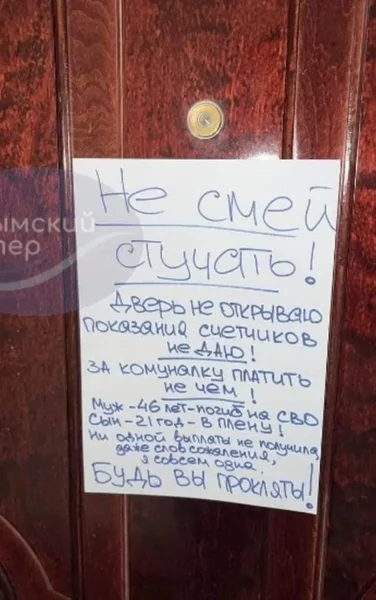 Не смей
стучать!
Дверь не открываю
показания счетчиков
не даю!
за комуналку платить
не чем!
Муж - 46 лет - погиб на СВО
Сын - 21 год - в плену!
Ни одной выплаты не получила,
даже слов сожаления,
я совсем одна.
Будь вы прокляты!
ымский
тер